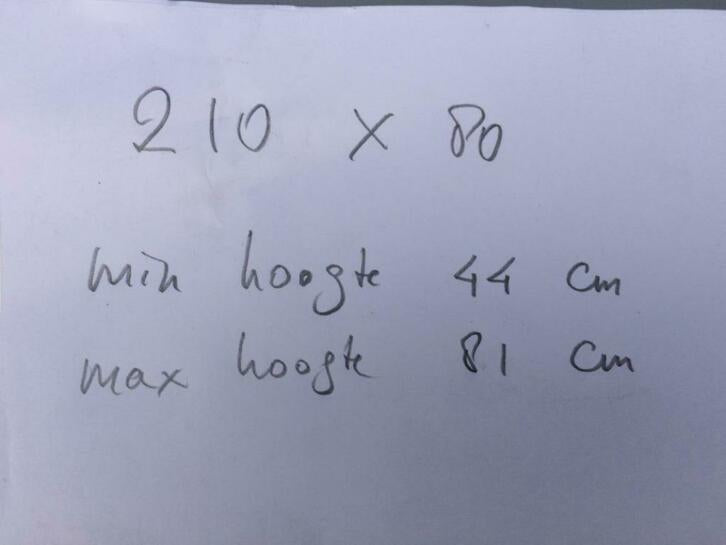 210 x 80
min hoogte 44 cm
max hoogte 81 cm